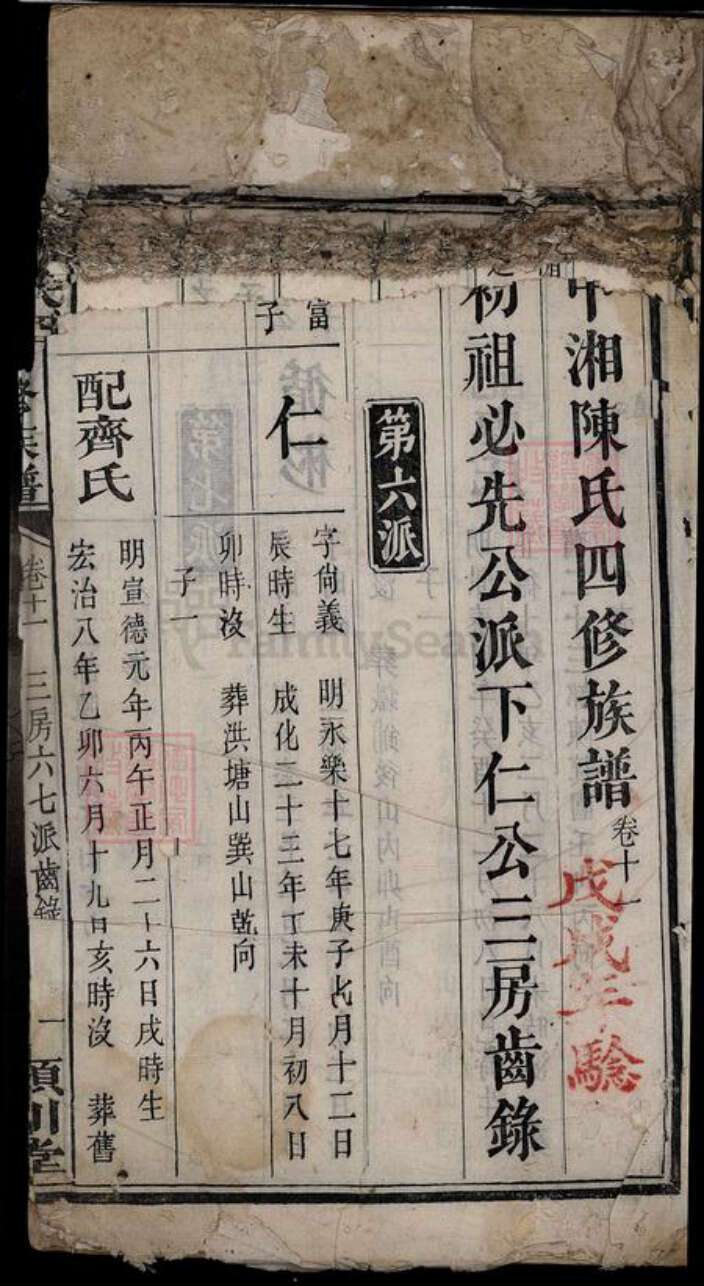 中湘陳氏四修族譜卷十一
戊戌年驗
初祖必先公派下仁公三房齒錄
第六派
富
子
仁
字尙義 明永樂十七年庚子七月十二日
辰時生 成化二十三年丁未十月初八日
卯時沒 葬洪塘山巽山乾向
子一
配齊氏
明宣德元年丙午正月二十六日戌時生
宏治八年乙卯六月十九日亥時沒 葬舊
族譜
卷十一
三房六七派齒錄
一
FamilySearch